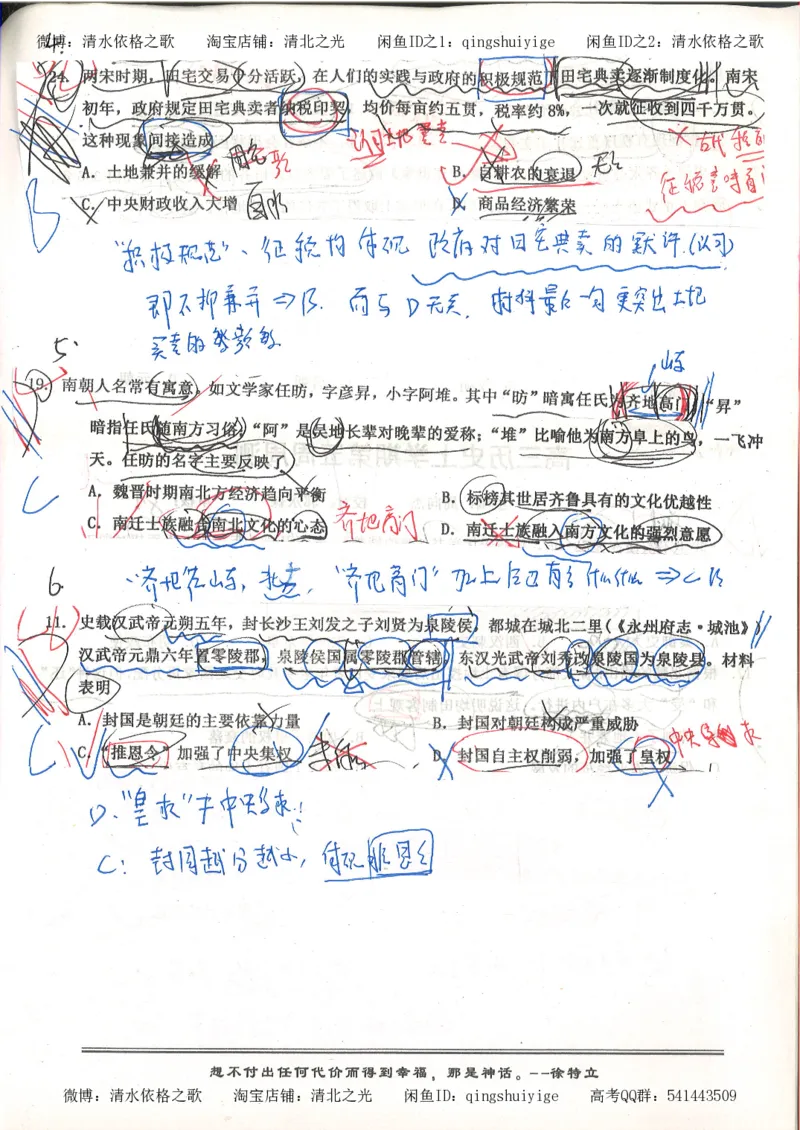 微博：清水依格之歌 淘宝店铺：清北之光 闲鱼ID之1：qingshuiyige 闲鱼ID之2：清水依格之歌
4.
24. 两宋时期，田宅交易十分活跃，在人们的实践与政府的积极规范下田宅典卖逐渐制度化。南宋
初年，政府规定田宅典卖者纳税印契，均价每亩约五贯，税率约8%，一次就征收到四千万贯。
这种现象间接造成
A. 土地兼并的缓解 B. 自耕农的衰退
C. 中央财政收入大增 D. 商品经济繁荣
B
“积极规范”、征税均体现 政府对田宅典卖的默许.
即不抑兼并⇒B. 而与D无关.
买卖的
5.
19. 南朝人名常有寓意，如文学家任昉，字彦昇，小字阿堆。其中“昉”暗寓任氏为齐地高门，“昇”
暗指任氏随南方习俗，“阿”是吴地长辈对晚辈的爱称；“堆”比喻他为南方阜上的鸟，一飞冲
天。任昉的名字主要反映了
A. 魏晋时期南北方经济趋向平衡 B. 标榜其世居齐鲁具有的文化优越性
C. 南迁士族融合南北文化的心态 齐地高门 D. 南迁士族融入南方文化的强烈意愿
C
6
11. 史载汉武帝元朔五年，封长沙王刘发之子刘贤为泉陵侯，都城在城北二里(《永州府志·城池》)
汉武帝元鼎六年置零陵郡，泉陵侯国属零陵郡管辖，东汉光武帝刘秀改泉陵国为泉陵县。材料
表明
A. 封国是朝廷的主要依靠力量 B. 封国对朝廷构成严重威胁
C. “推恩令”加强了中央集权 D. 封国自主权削弱，加强了皇权
C
D. “皇权”≠中央集权!
C: 封国越分越小，体现推恩令
想不付出任何代价而得到幸福，那是神话。--徐特立
微博：清水依格之歌 淘宝店铺：清北之光 闲鱼ID：qingshuiyige 高考QQ群：541443509